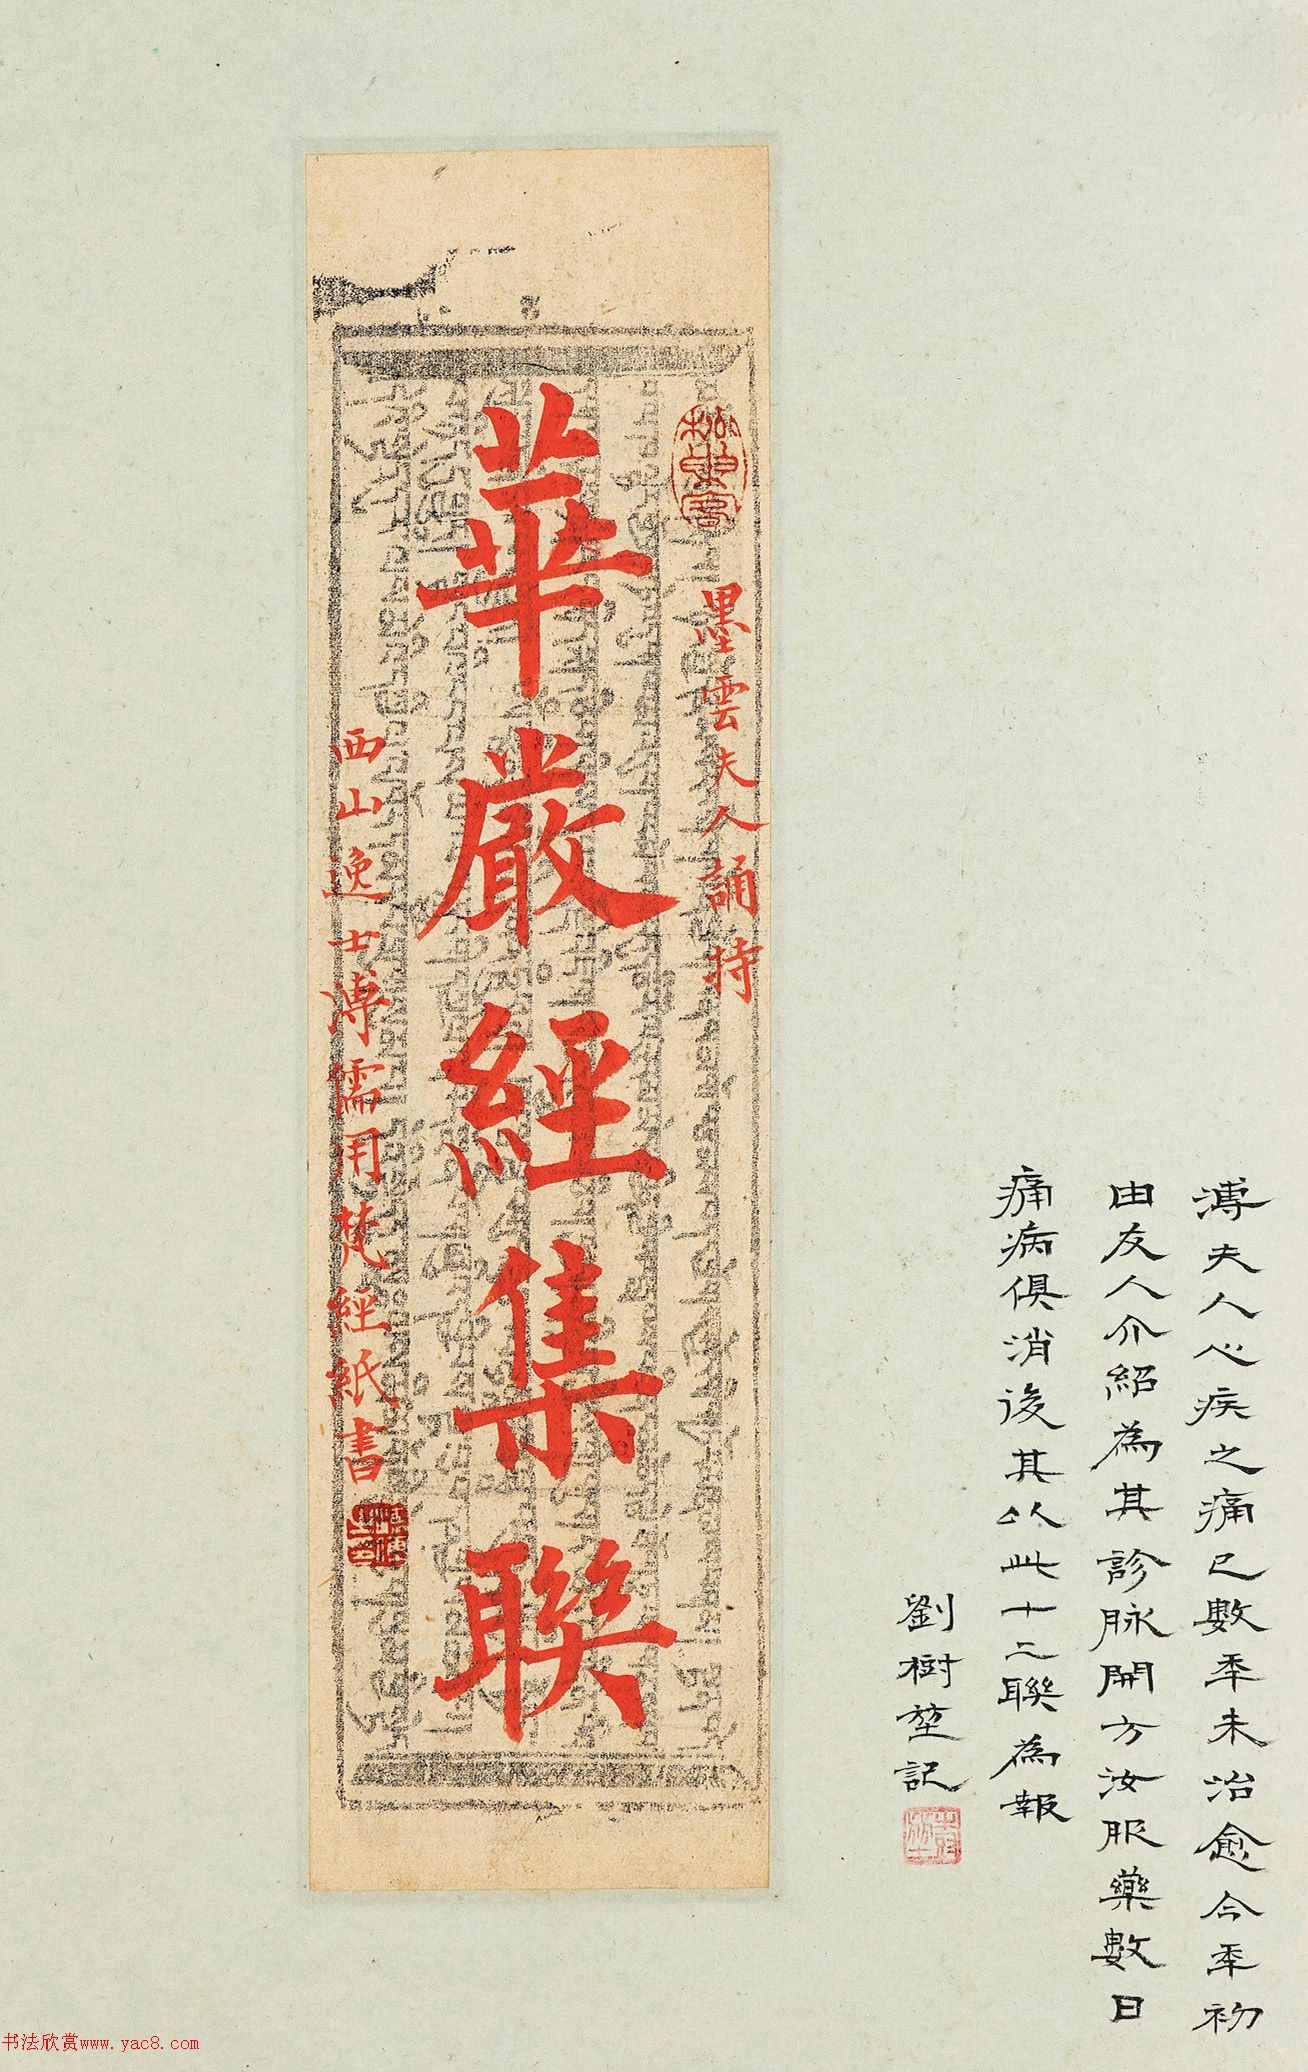 溥夫人心疾之痛已數年未治愈今年初
由友人介紹為其診脉開方汝服藥數日
痛病俱消後其以此十二聯為報
劉樹堃記
墨雲夫人誦持
華嚴經集聯
西山逸士溥儒用梵經紙書
书法欣赏www.yac8.com